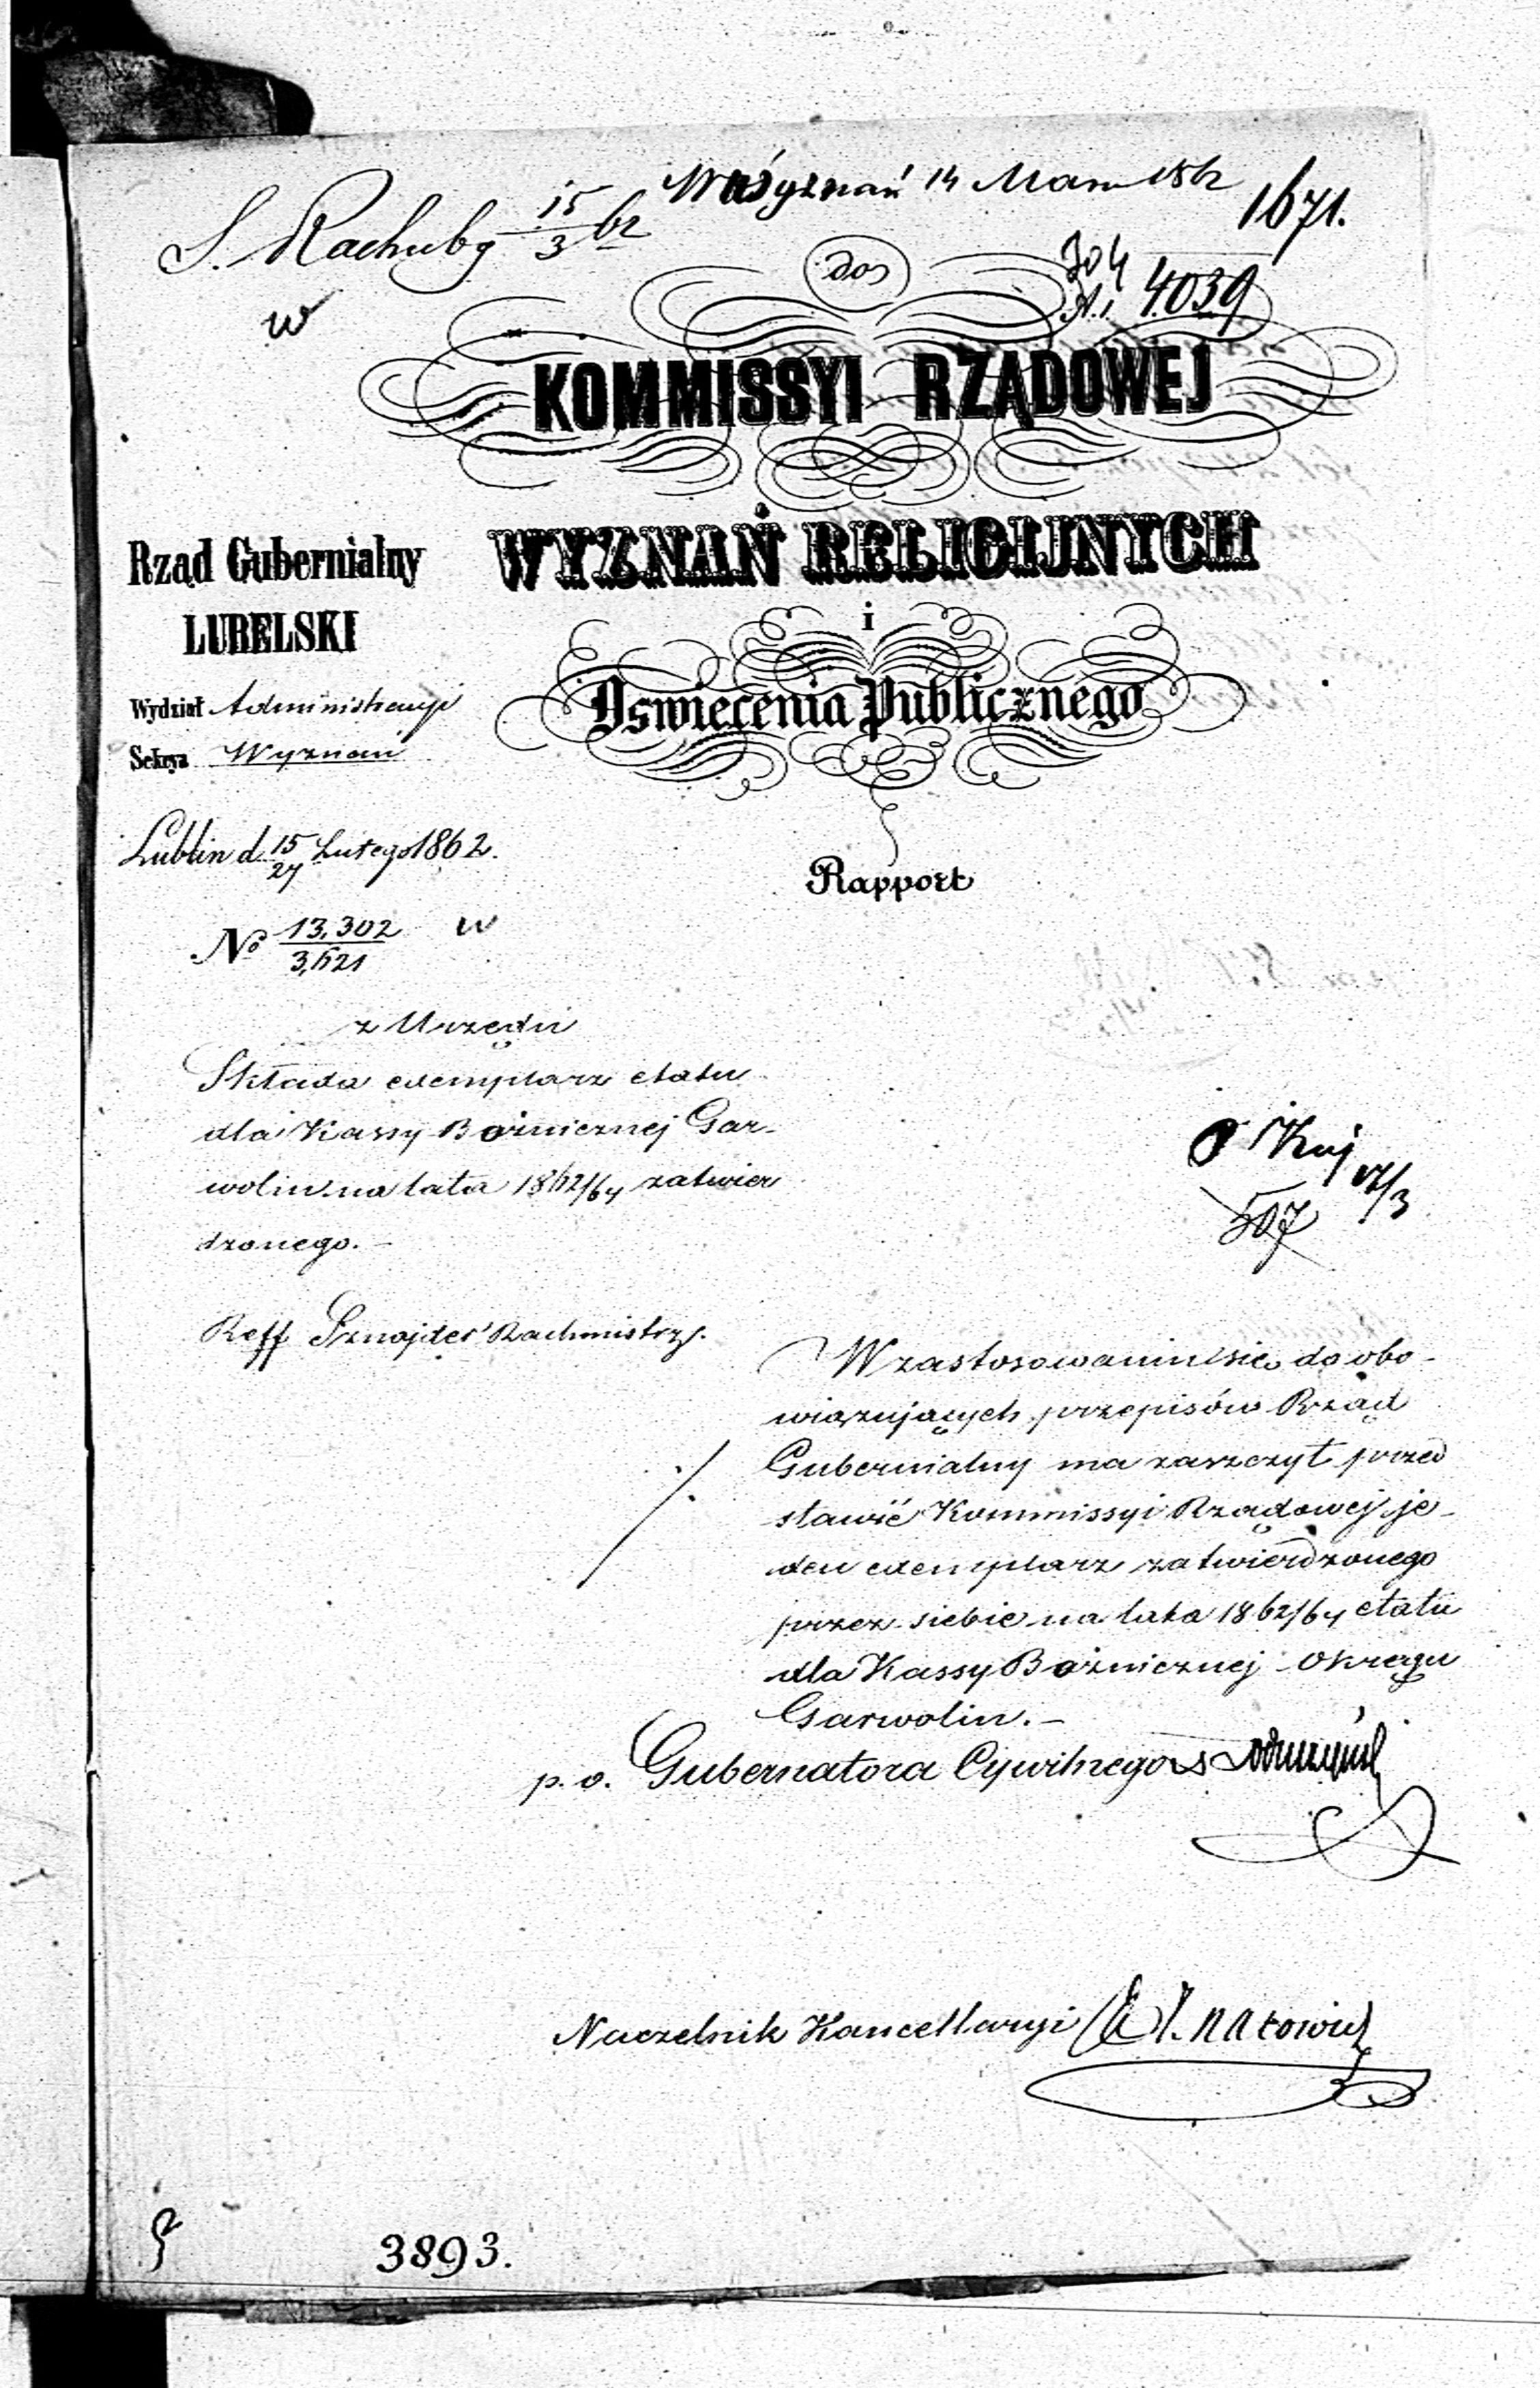 14 Marca 1862
1671.
S. Rachuby 15/3 62
w
do
4039
KOMMISSYI RZĄDOWEJ
WYZNAŃ RELIGIJNYCH
i
Oświecenia Publicznego
Rząd Gubernialny
LUBELSKI
Wydział Administracyi
Sekcya Wyznań
Lublin d. 15/27 Lutego 1862.
Rapport
No 13,302/3,621 w
z Urzędu
Składa exemplarz etatu
dla Kassy Bożnicznej Gar-
wolin na lata 1862/64 zatwier
dzonego. -
17/3
507
Reff Sznajder Rachmistrz.
W zastosowaniu się do obo-
wiązujących przepisów Rząd
Gubernialny ma zaszczyt przed
stawić Kommissyi Rządowej je-
den exemplarz zatwierdzonego
przez siebie na lata 1862/64 etatu
dla Kassy Bożnicznej Okręgu
Garwolin. -
p. o. Gubernatora Cywilnego
Naczelnik Kancellaryi
3893.